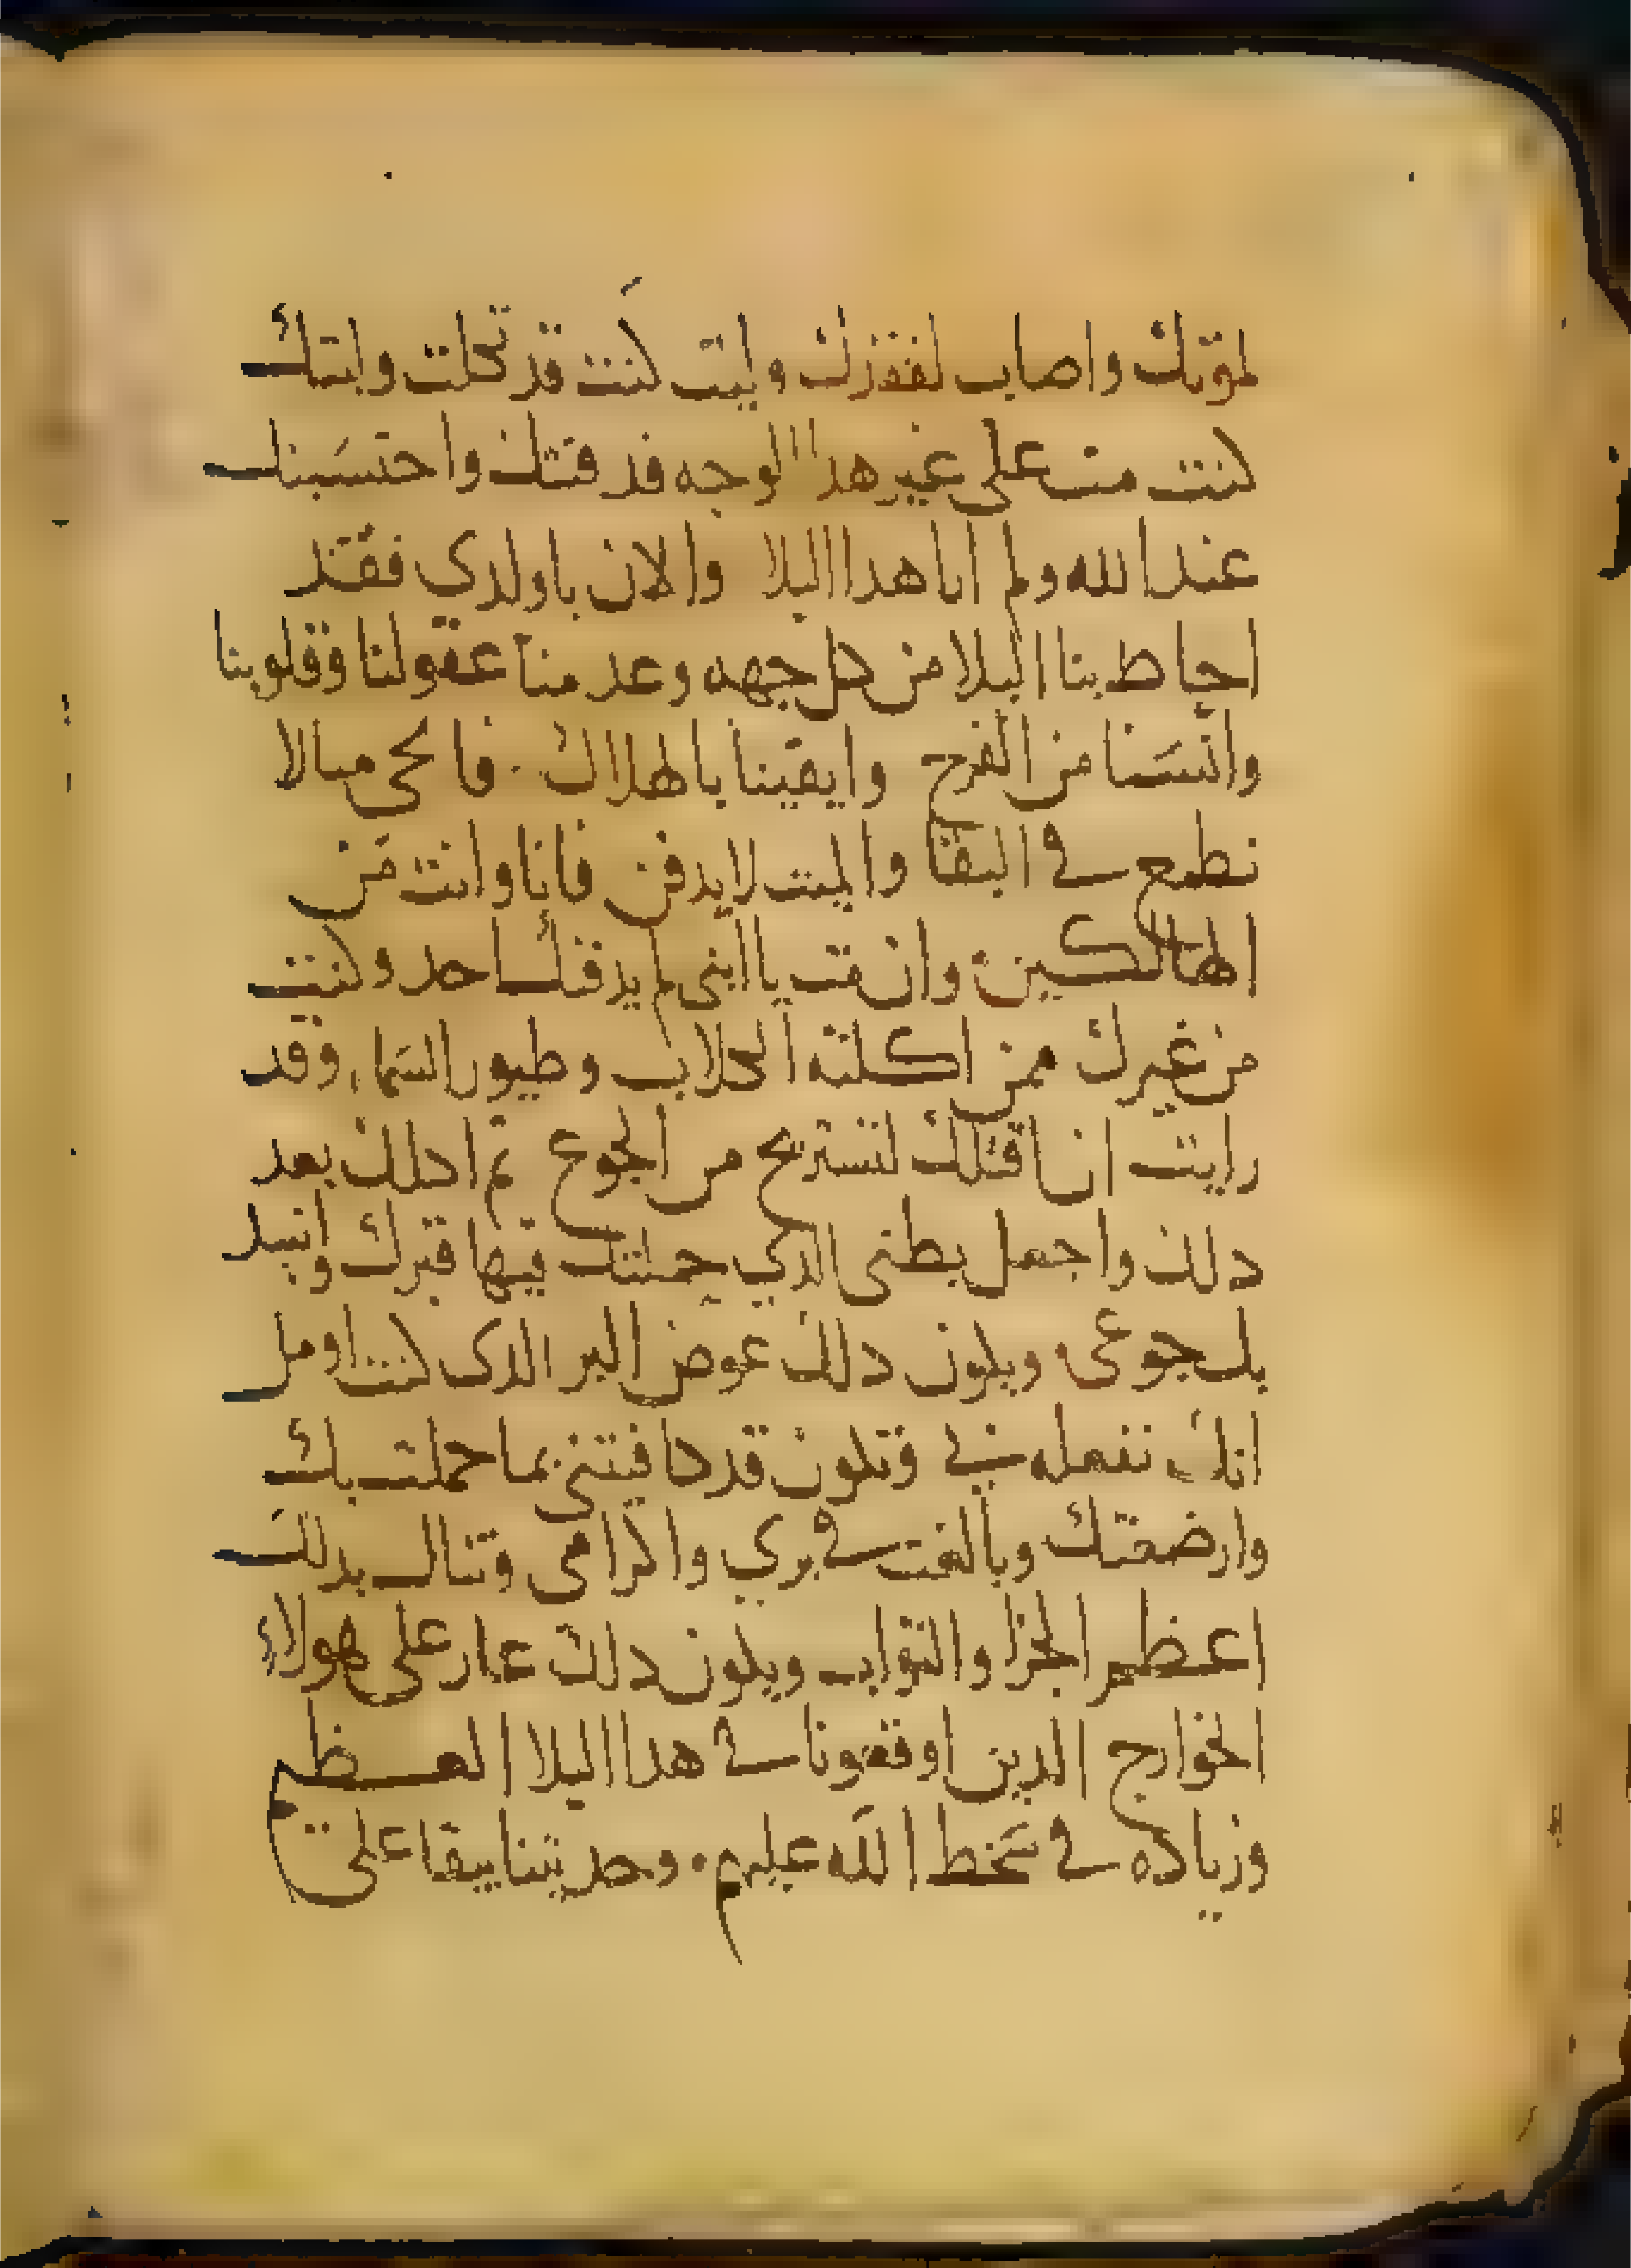 لموتك واصاب لفقدك وليت كنت قد تكلت وليتك
كنت مت على غير هدا الوجه قد فنتك واحتسبتك
عند الله ولم ارا هدا البلا والان ياولدي فقد
احاط بنا البلا من كل جهه وعدمنا عقولنا وقلوبنا
وانسنا من الفرج وايقينا بالهلاك فالحى منا لا
نطمع في البقا والميت لايدفن فانا وانت من
الهالكين وان مت يا ابنى لم يدفنك احد وكنت
من غيرك ممن اكلته الكلاب وطيور السما، وقد
رايت ان اقتلك لتستريح من الجوع ثم اكلك بعد
دلك واجعل بطنى الدي حملتك فيها قبرك واسد
بك جوعى ويكون دلك عوض البر الدى كنت اومل
انك تفعله بي وتكون قد كافيتنى بما حملت بك
وارضعتك وبالغت في بري واكرامى وتنال بدلك
اعظم الجزا والثواب ويكون دلك عار على هولاء
الخوارج الدين اوقعونا في هدا البلا العظيم
وزياده في سخط الله عليهم. وحديثنا يبقا على